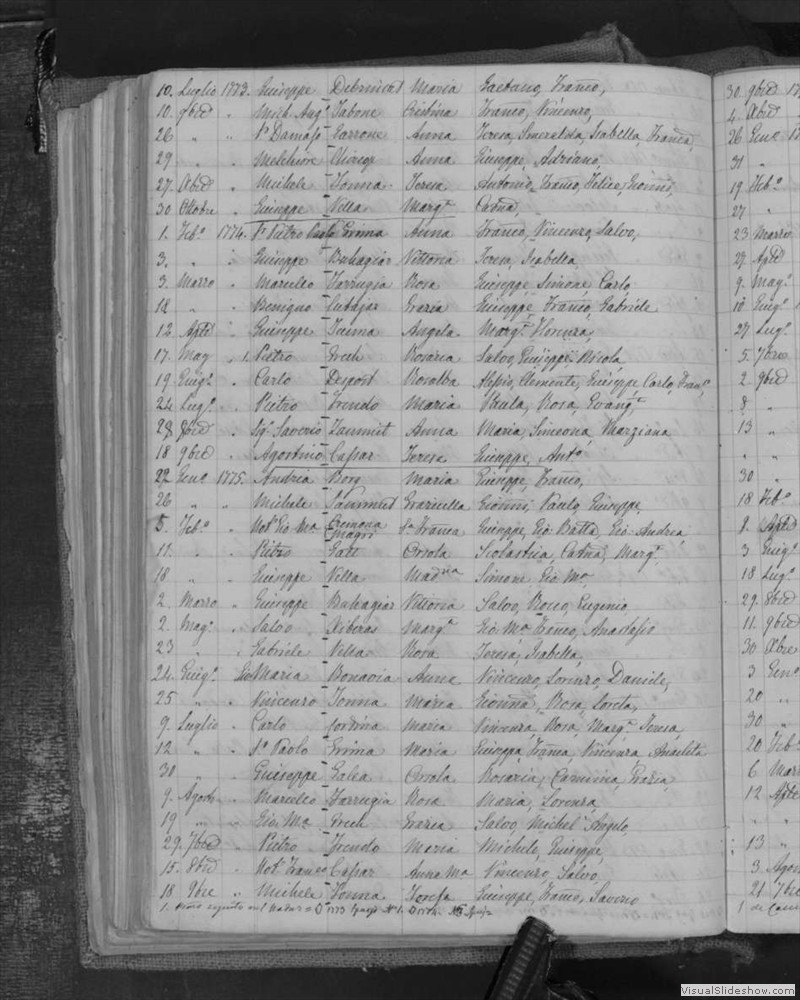 10. Luglio 1773. Giuseppe Debruicat Maria Gaetano, Franco,
10. 9bre " Mich. Ang.º Tabone Cristina Franco, Vincenzo,
26 " " Sr Damaso Garrone Anna Teresa, Smeralda, Isabella, Franca,
29 " " Melchiore Anna Giuseppe, Adriano,
27 Xbre " Michele Tonna Teresa Antonio, Franco, Felice, Gionni,
30 Ottobre " Giuseppe Vella Margª Catna,
1. Feb.º 1774. Sr Pietro Paolo Grima Anna Franco, Vincenzo, Salvo,
3. " " Giuseppe Buhagiar Vittoria Teresa, Isabella
3 Marzo " Marcello Farrugia Rosa Giuseppe Simone, Carlo
18 " " Benigno Cutajar Grazia Giuseppe, Franco, Gabriele
12 Aple " Giuseppe Tauna Angela Margª Florenza,
17. Mag " 1. Pietro Grech Rosaria Salvo, Giuseppe Nicola,
19 Giug.º " Carlo Despott Rosolba Alesio, Clemente, Giuseppe Carlo, Franc.
24 Lug.º " Pietro Frendo Maria Paula, Rosa, Evangª
28 8bre " Sig. Saverio Zammit Anna Maria, Simeona, Marziana
18 9bre " Agostino Caspar Teresa Giuseppe, Antº
22 Genº 1775. Andria Borg Maria Giuseppe, Franco,
26 " " Michele Sammut Graziulla Gionni, Paulo, Giuseppe,
5. Feb.º " Notº Gio Ma. Cremona Sra Franca Giuseppe, Gio Batta, Gio Andrea,
Magri
11. " " Pietro Gatt Orsola Scolastica, Catna, Margª
18 " " Giuseppe Vella Madna Simone Gio Ma
2. Marzo " Giuseppe Buhagiar Vittoria Salvo, Rocco, Eugenio
2. Mag.º " Salvo Xiberas Margª Gio Ma. Franco, Anastasio
23 " " Gabriele Vella Rosa Teresa, Isabella,
24. Giug.º " Gio Maria Bonavia Anna Vincenzo, Lorenzo, Daniele,
25 " " Vincenzo Tonna Maria Gionna, Rosa, Loreta,
9. Luglio " Carlo Cordina Maria Vincenza, Rosa, Margª Teresa,
12 " " Sr Paolo Grima Maria Giuseppa, Franca, Vincenza, Anacleta
30 " " Giuseppe Galea Orsola Rosaria, Carmina, Grazia,
9. Agosto " Marcello Farrugia Rosa Maria, Lorenza,
19 " " Gio Ma. Grech Grazia Salvo, Michel Angelo,
29. 7bre " Pietro Frendo Maria Michele, Giuseppe,
15. 8bre " Notº Franco Caspar Anna Ma Vincenzo, Salvo,
18 9bre " Michele Tonna Josefa Giuseppe, Franco, Saverio
30. 9bre 17
4. Xbre
26 Genº 17
31 "
19 Feb.º
27 "
23 Marzo
29. Aple
9. Mag.º
10 Giug.º
27 Lug.º
5. 7bre
2. 9bre
8 "
13 "
" "
30 "
18 Feb.º
8. Aple
3 Giug.º
18 Lug.º
29. 8bre
11. 9bre
30 Xbre
3 Genº
20 "
30 "
20 Feb.º
6 Marz
12 Aple
" "
13 "
3. Agos
21. 7bre
VisualSlideshow.com